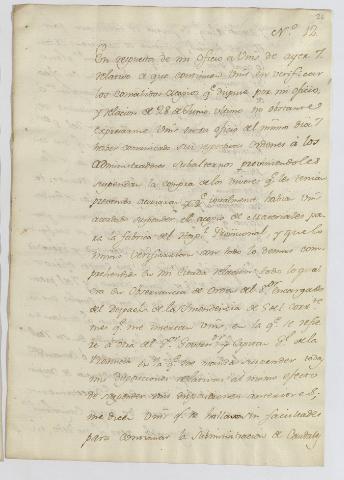 26
N.º 12.
En respuesta de mi oficio a Vms de ayer 7.
relativo a que continuen Vms en verificar
los comatidos acopios q.e dispuse por mi oficio,
y relacion de 28 de Junio ultimo no obstante
expresarme Vms en su oficio del mismo dia 7
haber comunicado sus respectivas ordenes á los
Administradores subalternos previniendoles
suspendan la compra de los viveres q.e les tenian
prevenido acopiaran y q.e igualmente habia Vm
acordado suspender el acopio de materiales pa
ra la fabrica del Hospit.l Provisional, y que lo
mismo verificarian con todo lo demas com
prehendido en mi citada relacion todo lo qual
era en observancia de orden del S.or Encargado
del Despacho de la Yntendencia de 5 del corr.te
mes q.e me insertan Vms, en la q.e se refie
re á otra del S.or Gover.or y Capitan G.l de la
Provincia en la q.e me manda suspender todas
mis disposiciones relativas al mismo efecto
de suspender mis disposiciones anteriores,
me dicen Vms q.e se hallavan sin facultades
para continuar la Subministracion de Caudales